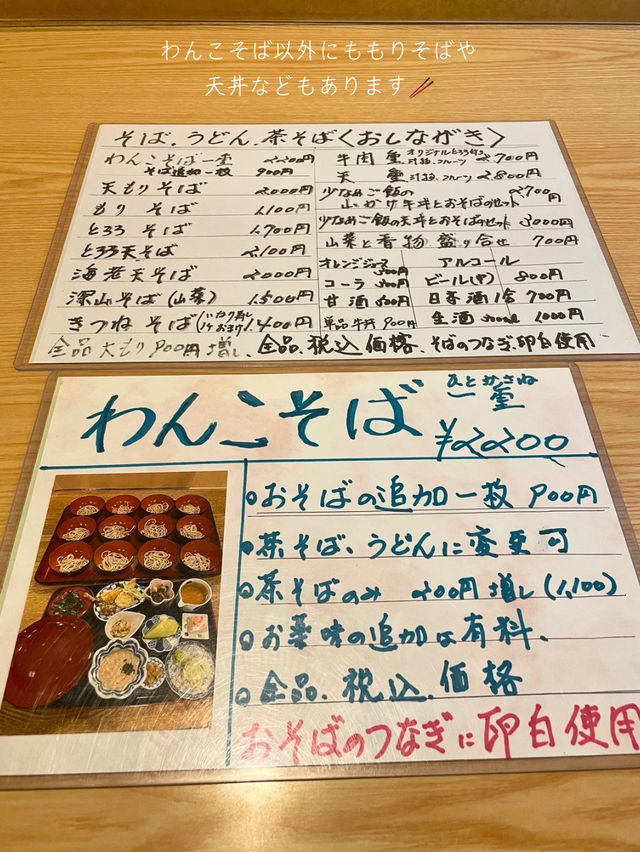 わんこそば以外にももりそばや
天丼などもあります
そば.うどん.茶そば〈おしながき〉
わんこそば一重 2200円
そば追加一枚 900円
天もりそば 2,000円
もりそば 1,100円
とろろそば 1,700円
とろろ天そば 2,100円
海老天そば 2000円
深山そば(山菜) 1,500円
きつねそば 1,400円
全品大もり900円増し.全品.税込価格.そばのつなぎ.卵白使用
牛肉重 2,700円
天重 2,800円
少なめご飯の 2700円
山かけ牛丼とおそばのセット
少なめご飯の天丼とおそばのセット 3000円
山菜と香物盛り合せ 700円
オレンジジュース
コーラ
甘酒
単品牛丼 900円
アルコール
ビール(中) 800円
日本酒1合 700円
生酒 1000円
わんこそば
ひとかさね
一重
¥2200
おそばの追加一枚 900円
茶そば、うどんに変更可
茶そばのみ 200円増し(1,100)
お薬味の追加は有料、
全品.税込.価格
おそばのつなぎに卵白使用